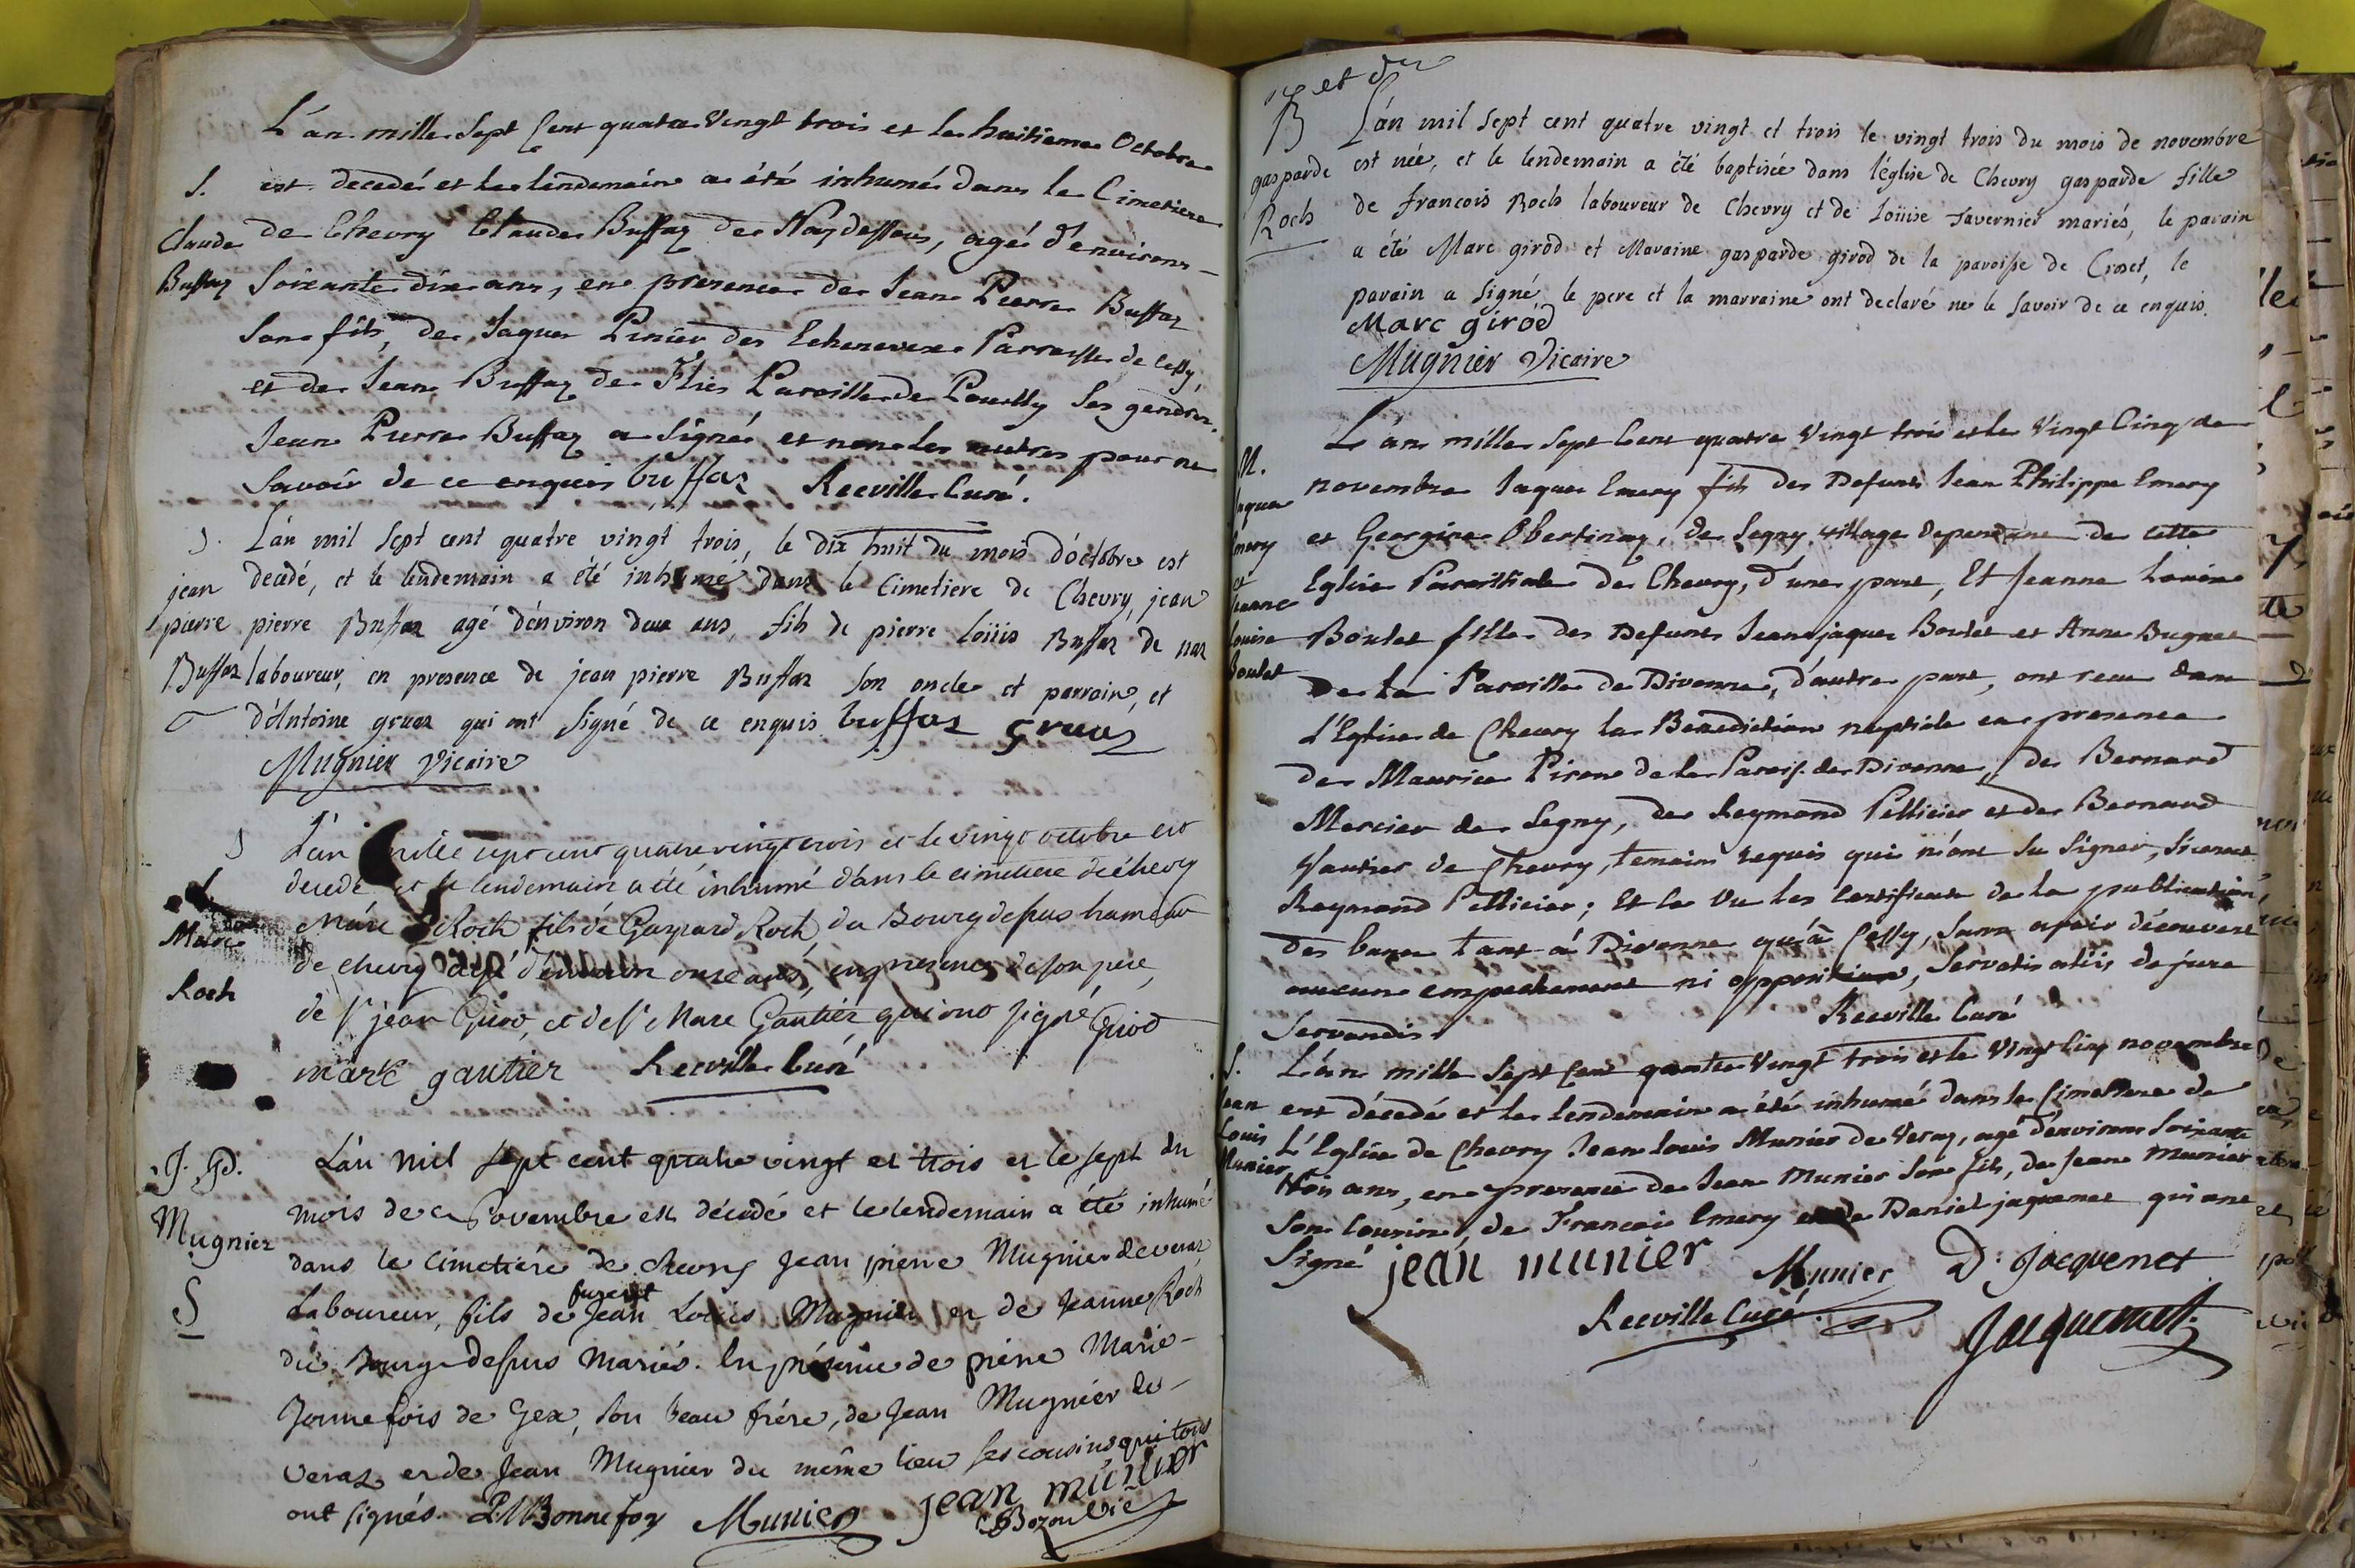 L'an mille sept Cent quatre Vingt trois et le huitieme Octobre
S. est decedé et le lendemain a été inhumé dans le Cimetiere
Claude de Chevry Claude Buffaz de Naz dessous, agé d'environ
Buffaz Soixante dix ans, en presence de Jean Pierre Buffaz
Son fils, de Jaques Pinier des Echenevex Parroisse de Cessy,
et de Jean Buffaz de Flies Paroisse de Pouilly Ses gendres.
Jean Pierre Buffaz a Signé et non les autres pour ne
Savoir de ce enquis buffaz Reeville Curé.
S. L'an mil sept cent quatre vingt trois, le dix huit du mois d'octobre est
jean decedé, et le lendemain a été inhumé dans le Cimetiere de Chevry, jean
pierre pierre Buffaz agé d'environ deux ans, fils de pierre loüis Buffaz de naz
Buffaz laboureur, en presence de jean pierre Buffaz son oncle et parrain, et
d'Antoine gruaz qui ont signé de ce enquis. buffaz gruaz
Mugnier Vicaire
S L'an mille sept cent quatre vingt trois et le vingt octobre est
decedé et le lendemain a été inhumé dans le cimetiere de chevry
Marc Marc Roch fils de Gaspard Roch du Bourg dessus hameau
de chevry agé d'environ onze ans, en presence de son pere,
Roch de Sr jean Girod, et de Sr Marc Gautier qui ont signé Girod
marc gautier Reeville Curé
J. P. L'an mil sept cent quatre vingt et trois et le sept du
Mugnier mois de Novembre est décedé et le lendemain a été inhumé
dans le cimetiére de chevry Jean pierre Mugnier de veraz
furent
S Laboureur, fils de Jean Louis Mugnier et de Jeanne Roch
du Bourg dessus mariés. En présence de pierre Marie
Bonnefois de Gex, son beau frére, de Jean Mugnier de
veraz, et de Jean Mugnier du même lieu ses cousins qui tous
ont signés. PMBonnefoy Munier Jean munier
Bozon Vic
et du
B L'an mil sept cent quatre vingt et trois le vingt trois du mois de novembre
gasparde est née, et le lendemain a été baptisée dans l'église de Chevry gasparde fille
Roch de francois Roch laboureur de Chevry et de loüise Tavernier mariés, le parain
a été Marc girod et Maraine gasparde girod de la paroisse de Croset, le
parain a signé le pere et la marraine ont declaré ne le savoir de ce enquis.
Marc girod
Mugnier Vicaire
L'an mille Sept Cent quatre Vingt trois et le Vingt Cinq de
M. novembre Jaques Emery fils des Defunts Jean Philippe Emery
Jaques et Georgine Obertinaz, de Segny village dependant de cette
Emery et Eglise Paroissiale de Chevry, d'une part, Et Jeanne Louise
Jeanne Louise Boulet fille des Defunts Jean jaques Boulet et Anne Bugnet
Boulet De la Paroisse de Divonne, d'autre part, ont recu dans
L'Eglise de Chevry la Benediction nuptiale en presence
de Maurice Piron de la Parois. de Divonne, de Bernard
Mercier de Segny, de Reymond Pellicier et de Bernard
Gautier de Chevry, temoins requis qui n'ont Su Signer,
Reymond Pellicier; Et ce Vu les Certificats de la publication,
des bancs tant à Divonne qu'à Cessy, Sans avoir découvert
aucun empechement ni opposition, Servatis aliis de jure
Servandis. Reeville Curé
S. L'an mille Sept Cent quatre Vingt trois et le Vingt Cinq novembre
Jean est décedé et le lendemain a été inhumé dans le Cimetiere de
Louis L'Eglise de Chevry Jean Louis Munier de Veraz, agé d'environ Soixante
Munier trois ans, en presence de Jean Munier Son fils, de Jean Munier
Son Cousin, de Francois Emery et de Daniel jaquemet qui ont
Signé jean munier Munier D. Jacquemet
Reeville Curé Jacquemet